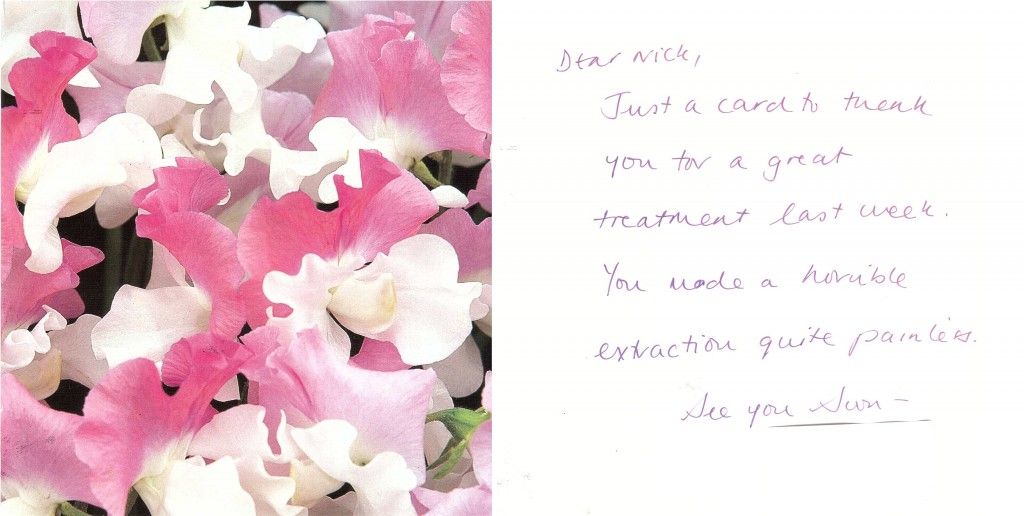 Dear Nick,
Just a card to thank
you for a great
treatment last week.
You made a horrible
extraction quite painless.
See you soon -